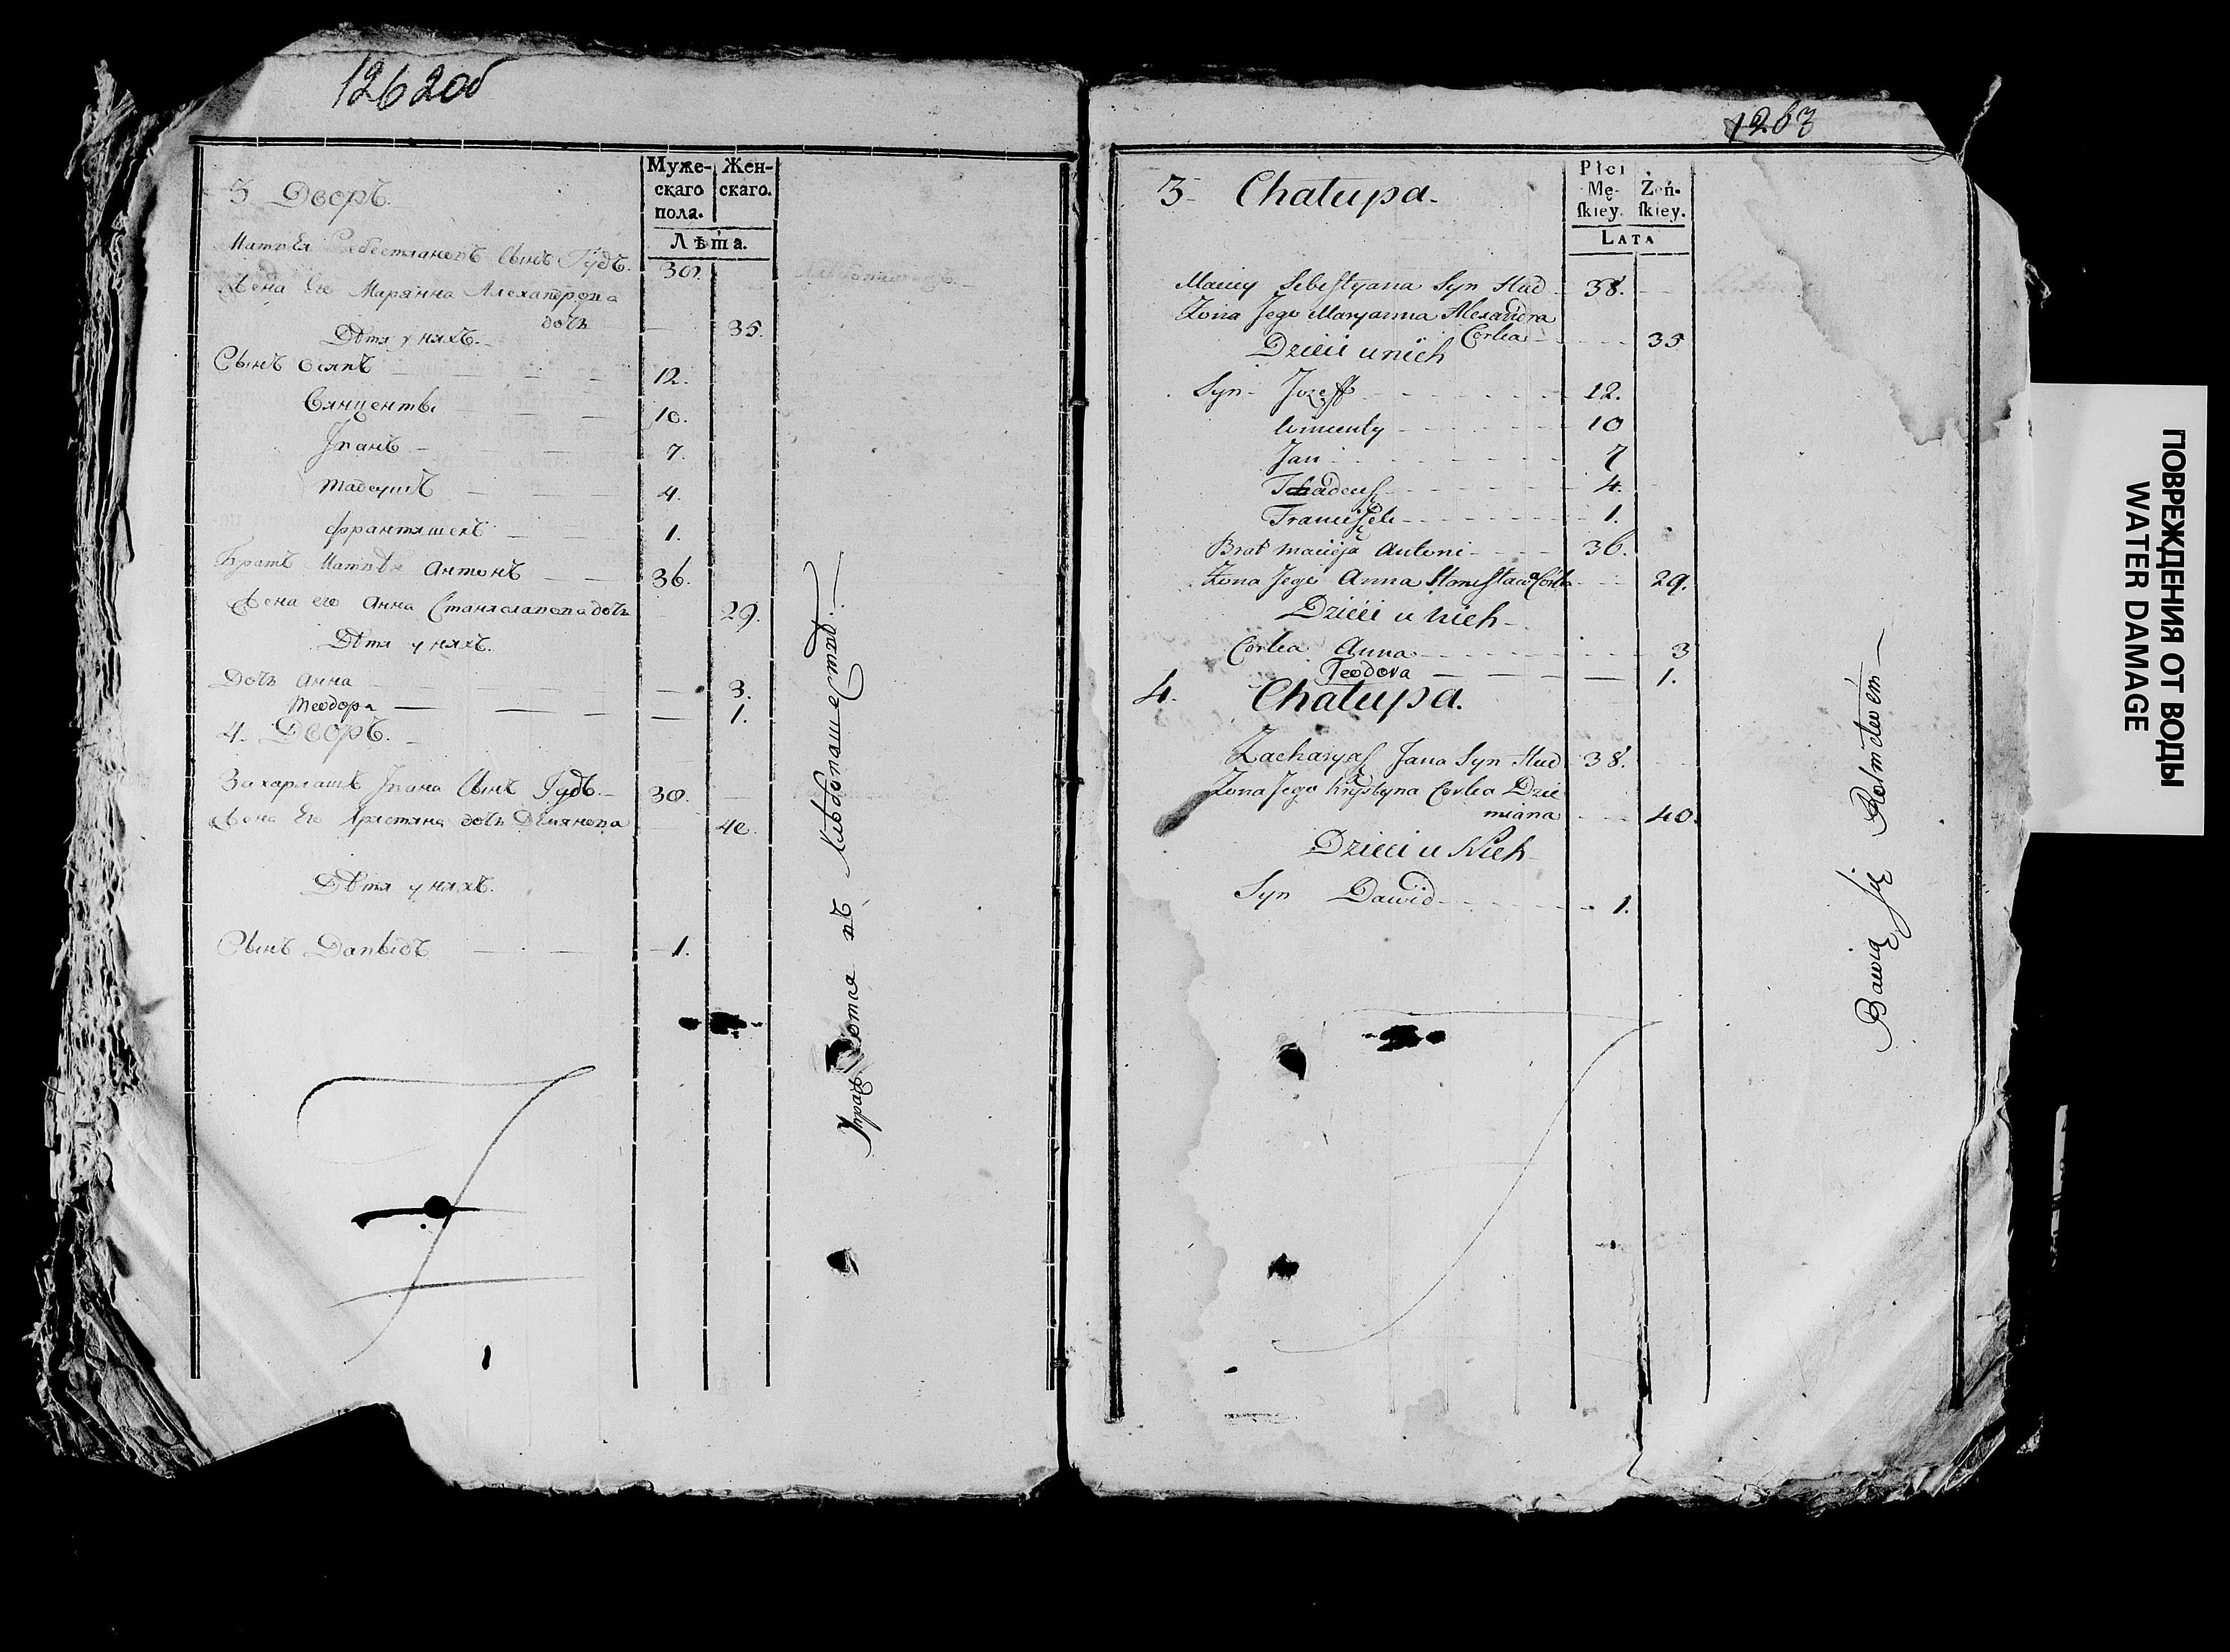 1262 об
Муже-
скаго
пола.
Жен-
скаго.
Лѣта.
3 Дворъ.
Матвѣя Себестяановъ Сынъ Гудъ. 38.
Жена Его Марянна Александрова
дочь 35.
Дѣтя у няхъ.
Сынъ Осяпъ 12.
Вянценты 10.
Іванъ 7.
Тадеушъ 4.
Франтяшекъ 1.
Братъ Матвѣя Антонъ 36.
Жена его Анна Станяславова дочь 29.
Дѣтя у няхъ.
Дочь Анна 3.
Теодора 1.
4. Дворъ.
Захарлашъ Івана Сынъ Гудъ. 38.
Жена Его Крястяна дочь Демянова 40.
Дѣтя у няхъ.
Сынъ Давыдъ 1.
въ Хлѣбопашествѣ.
1263
Płci
Mę-
ſkiey.
Żeń-
ſkiey.
Lata
3 Chałupa.
Maciey Sebeſtyana Syn Hud 38.
Żona Jego Maryanna Alexandra
Corka 35
Dzieci u nich
Syn Jozeff 12.
Wincenty 10
Jan 7
Tadeuſz 4.
Franciſzek 1.
Brat Macieja Antoni 36.
Żona Jego Anna Staniſława Corka 29.
Dzieci u Nich
Corka Anna 3
Teodora 1.
4. Chałupa.
Zacharyaſz Jana Syn Hud 38.
Żona Jego Krystyna Corka Dzie
miana 40.
Dzieci u Nich
Syn Dawid 1.
Bawią ſię Rolnictwem
ПОВРЕЖДЕНИЯ ОТ ВОДЫ
WATER DAMAGE